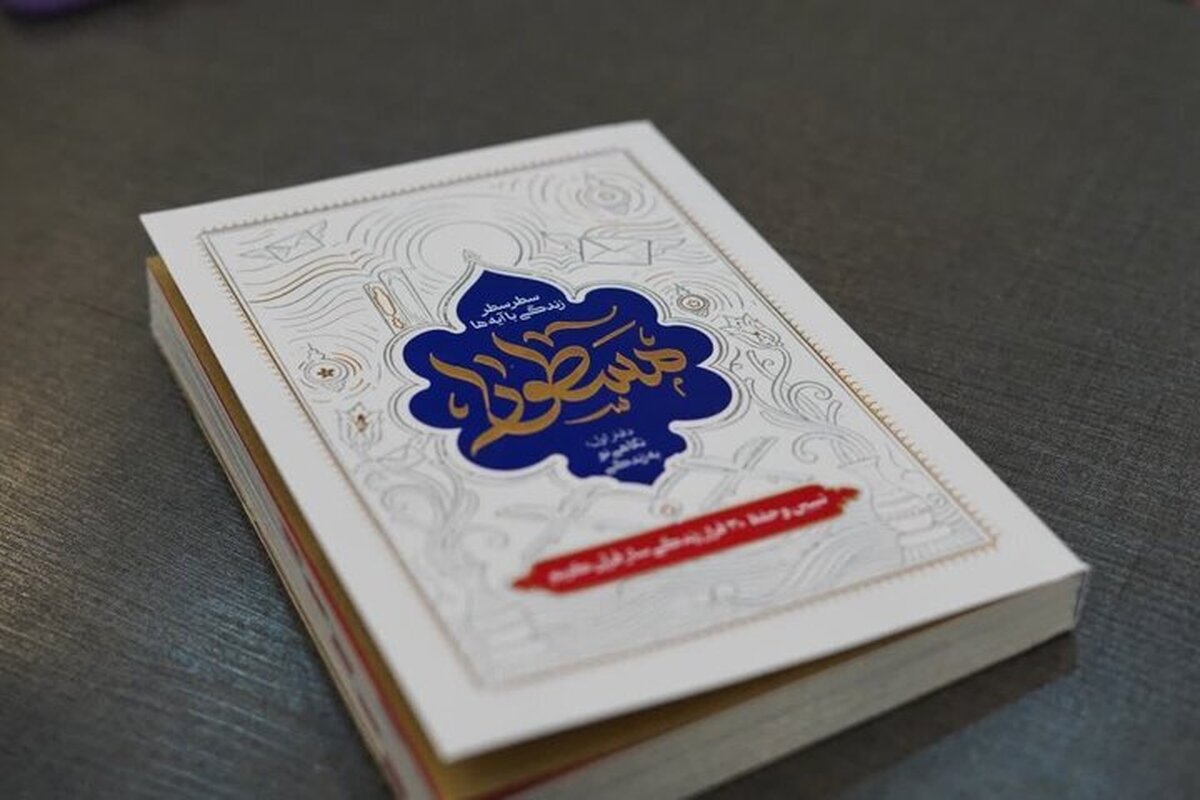 سطر سطر
زندگی با آیه‌ها
مسطورا
دفتر اول:
نگاهی نو
به زندگی
تبیین و حفظ ۳۰ فراز زندگی ساز قرآن کریم